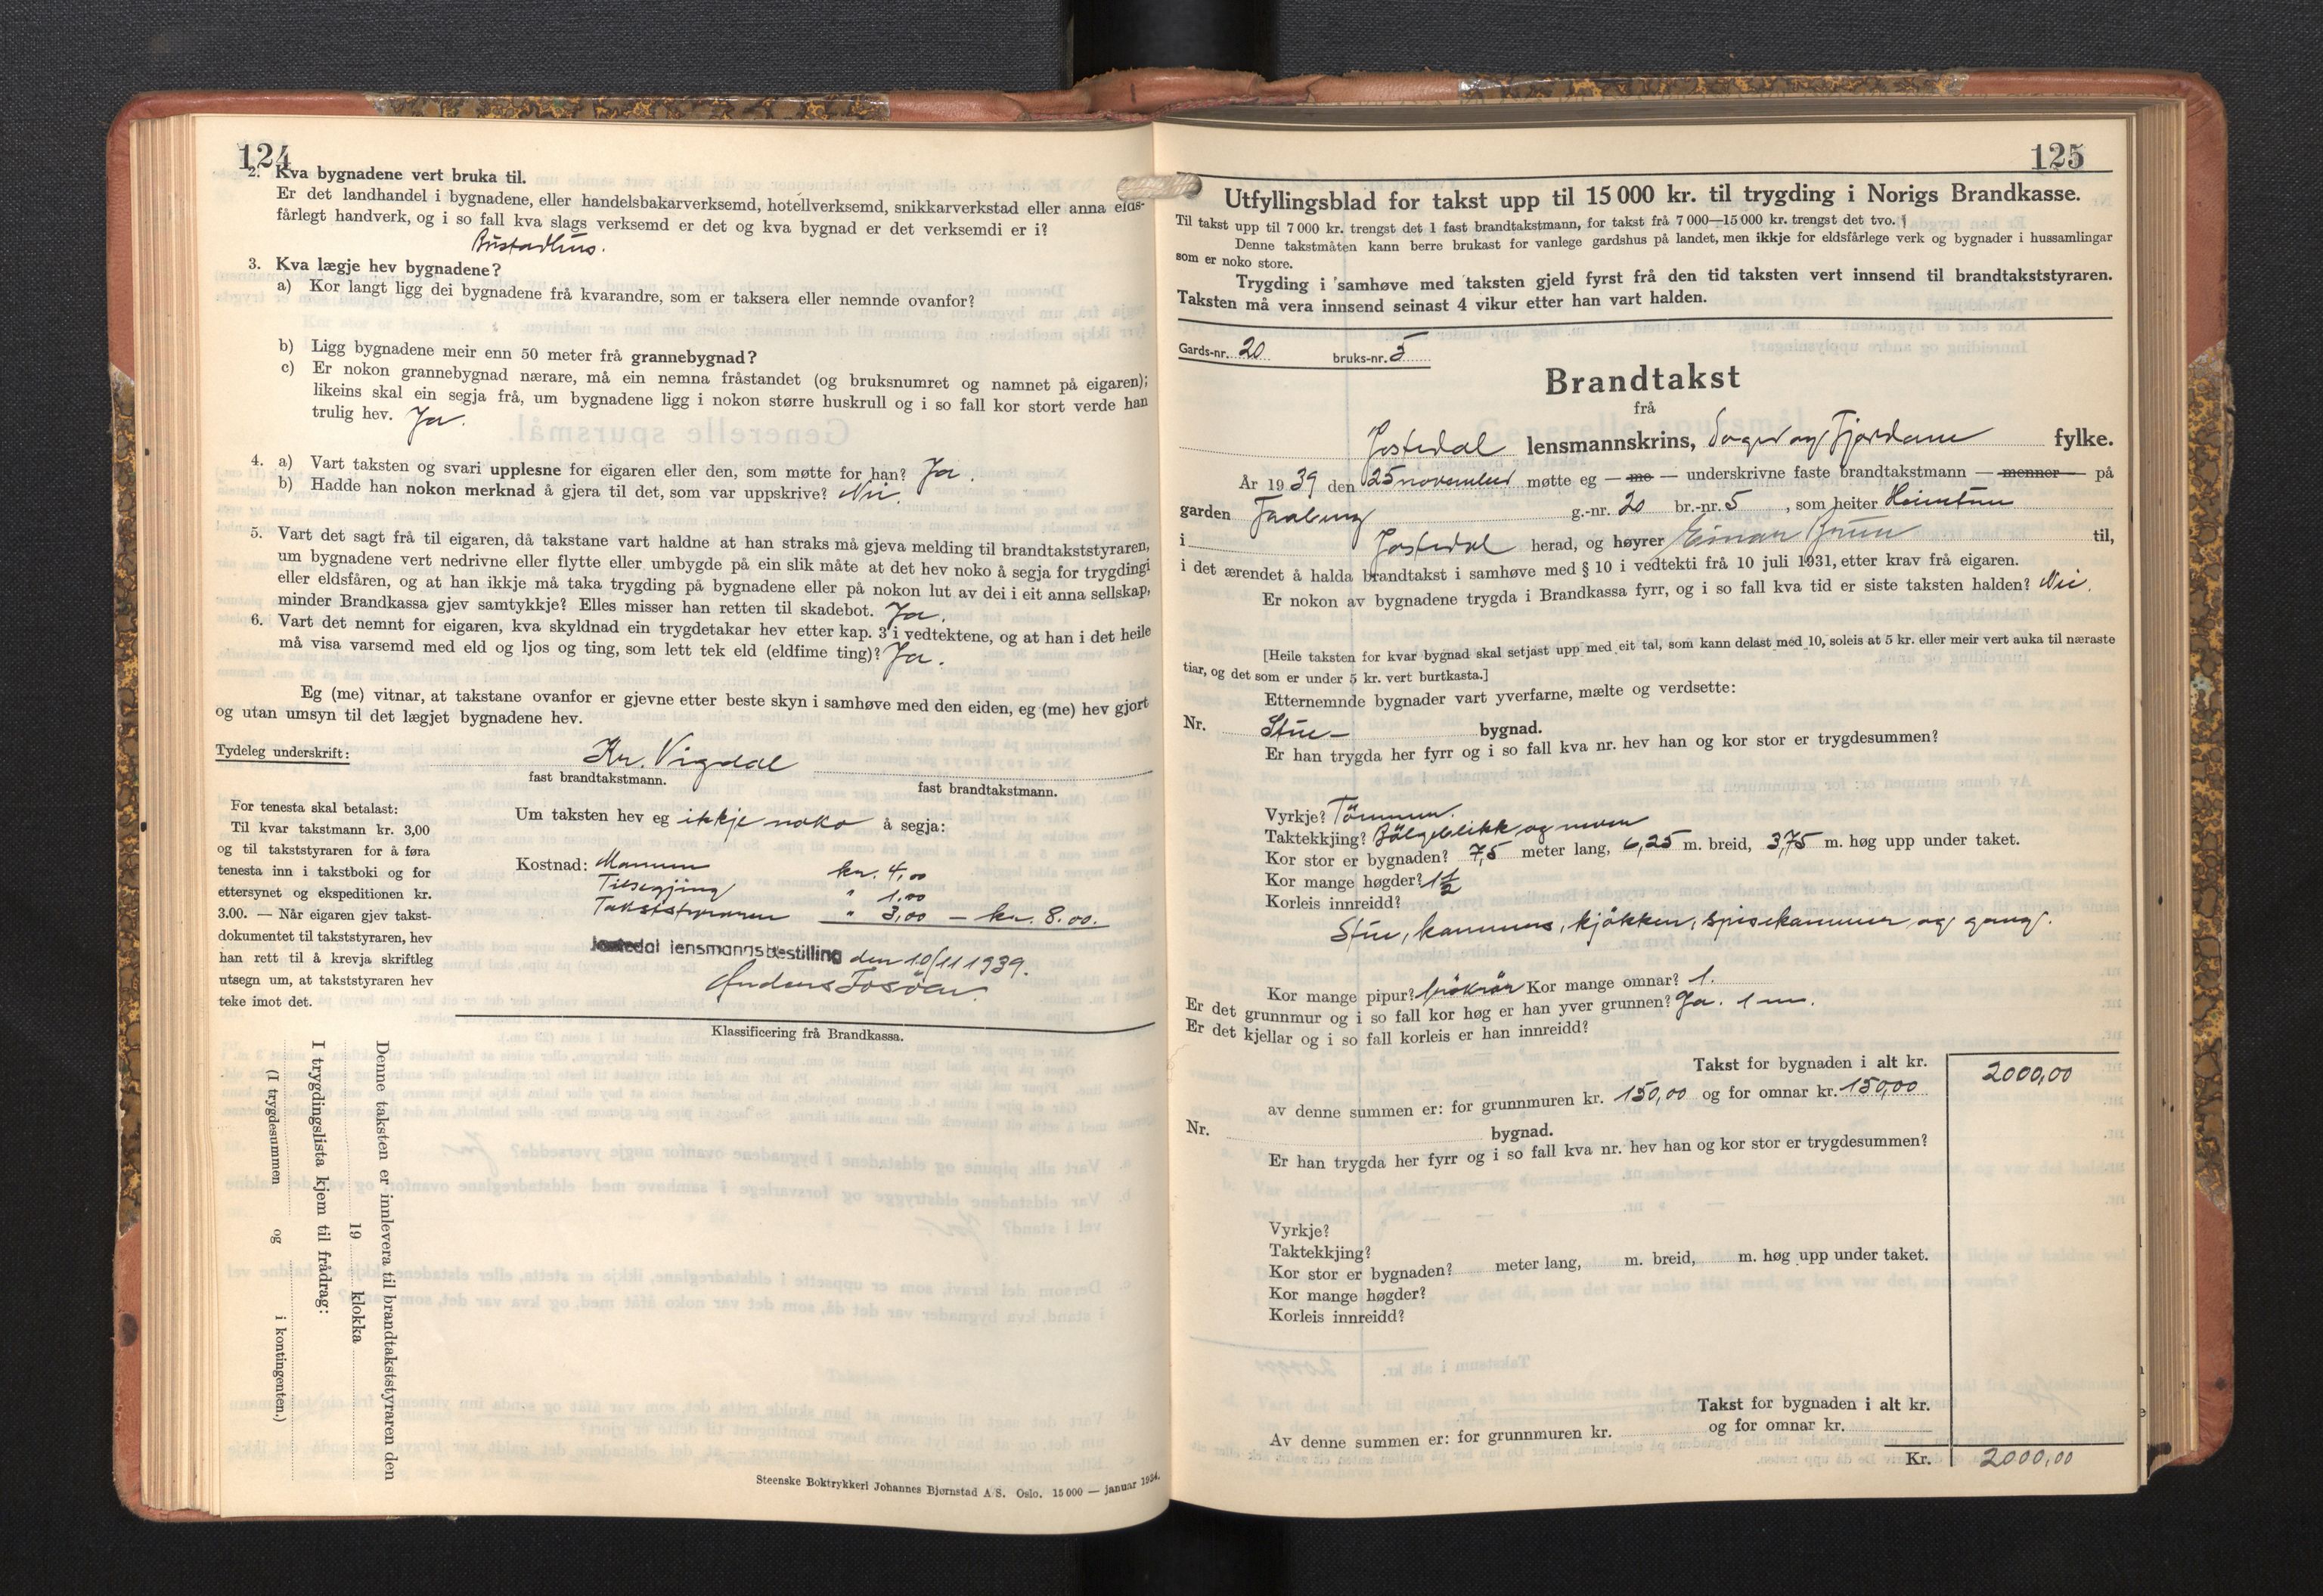 124
2. Kva bygnadene vert bruka til.
Er det landhandel i bygnadene, eller handelsbakarverksemd, hotellverksemd, snikkarverkstad eller anna elds-
fårlegt handverk, og i so fall kva slags verksemd er det og kva bygnad er det verksemdi er i?
Bustadhus.
3. Kva lægje hev bygnadene?
a) Kor langt ligg dei bygnadene frå kvarandre, som er taksera eller nemnde ovanfor?
b) Ligg bygnadene meir enn 50 meter frå grannebygnad?
c) Er nokon grannebygnad nærare, må ein nemna fråstandet (og bruksnumret og namnet på eigaren);
likeins skal ein segja frå, um bygnadene ligg i nokon større huskrull og i so fall kor stort verde han
trulig hev. Ja.
4. a) Vart taksten og svari upplesne for eigaren eller den, som møtte for han? Ja.
b) Hadde han nokon merknad å gjera til det, som var uppskrive? Nei.
5. Vart det sagt frå til eigaren, då takstane vart haldne at han straks må gjeva melding til brandtakststyraren,
um bygnadene vert nedrivne eller flytte eller umbygde på ein slik måte at det hev noko å segja for trygdingi
eller eldsfåren, og at han ikkje må taka trygding på bygnadene eller på nokon lut av dei i eit anna sellskap,
minder Brandkassa gjev samtykkje? Elles misser han retten til skadebot. Ja.
6. Vart det nemnt for eigaren, kva skyldnad ein trygdetakar hev etter kap. 3 i vedtektene, og at han i det heile
må visa varsemd med eld og ljos og ting, som lett tek eld (eldfime ting)? Ja.
Eg (me) vitnar, at takstane ovanfor er gjevne etter beste skyn i samhøve med den eiden, eg (me) hev gjort
og utan umsyn til det lægjet bygnadene hev.
Tydeleg underskrift: Kr. Vigdal
fast brandtakstmann. fast brandtakstmann.
For tenesta skal betalast:
Til kvar takstmann kr. 3,00
og til takststyraren for å føra
tenesta inn i takstboki og for
ettersynet og ekspeditionen kr.
3.00. — Når eigaren gjev takst-
dokumentet til takststyraren, hev
han rett til å krevja skriftleg
utsegn um, at takststyraren hev
teke imot det.
Um taksten hev eg ikkje noko å segja:
Kostnad: Mannen kr. 4,00
Tilsegjing " 1.00
Takststyraren " 3,00 — kr. 8.00.
Jostedal lensmannsbestilling den 10/11 1939.
Klassificering frå Brandkassa.
Denne taksten er innlevera til brandtakststyraren den
19 klokka
I trygdingslista kjem til frådrag:
(I trygdesummen og i kontingenten.)
Steenske Boktrykkeri Johannes Bjørnstad A.S. Oslo. 15 000 — januar 1934.
125
Utfyllingsblad for takst upp til 15 000 kr. til trygding i Norigs Brandkasse.
Til takst upp til 7 000 kr. trengst det 1 fast brandtakstmann, for takst frå 7 000—15 000 kr. trengst det tvo.
Denne takstmåten kann berre brukast for vanlege gardshus på landet, men ikkje for eldsfårlege verk og bygnader i hussamlingar
som er noko store.
Trygding i samhøve med taksten gjeld fyrst frå den tid taksten vert innsend til brandtakststyraren.
Taksten må vera innsend seinast 4 vikur etter han vart halden.
Gards-nr. 20 bruks-nr. 5
Brandtakst
frå
Jostedal lensmannskrins, Sogn og Fjordane fylke.
År 1939 den 25 november møtte eg — me — underskrivne faste brandtakstmann — menner — på
garden Faaberg g.-nr. 20 br.-nr. 5, som heiter Heimtun
i Jostedal herad, og høyrer Einar Brun til,
i det ærendet å halda brandtakst i samhøve med § 10 i vedtekti frå 10 juli 1931, etter krav frå eigaren.
Er nokon av bygnadene trygda i Brandkassa fyrr, og i so fall kva tid er siste taksten halden? Nei.
[Heile taksten for kvar bygnad skal setjast upp med eit tal, som kann delast med 10, soleis at 5 kr. eller meir vert auka til næraste
tiar, og det som er under 5 kr. vert burtkasta.]
Etternemnde bygnader vart yverfarne, mælte og verdsette:
Nr. Stue- bygnad.
Er han trygda her fyrr og i so fall kva nr. hev han og kor stor er trygdesummen?
Vyrkje? Tömmer.
Taktekkjing? Bölgeblikk og never
Kor stor er bygnaden? 7,5 meter lang, 6,25 m. breid, 3,75 m. høg upp under taket.
Kor mange høgder? 1 1/2
Korleis innreidd?
Stue, kammers, kjökken, spisekammer og gang.
Kor mange pipur? Kor mange omnar? 1.
Er det grunnmur og i so fall kor høg er han yver grunnen? Ja. 1 m.
Er det kjellar og i so fall korleis er han innreidd?
Takst for bygnaden i alt kr. 2000,00
av denne summen er: for grunnmuren kr. 150,00 og for omnar kr. 150,00
Nr. bygnad.
Er han trygda her fyrr og i so fall kva nr. hev han og kor stor er trygdesummen?
Vyrkje?
Taktekkjing?
Kor stor er bygnaden? meter lang, m. breid, m. høg upp under taket.
Kor mange høgder?
Korleis innreidd?
Takst for bygnaden i alt kr.
Av denne summen er: for grunnmuren kr. og for omnar kr.
Kr. 2000,00